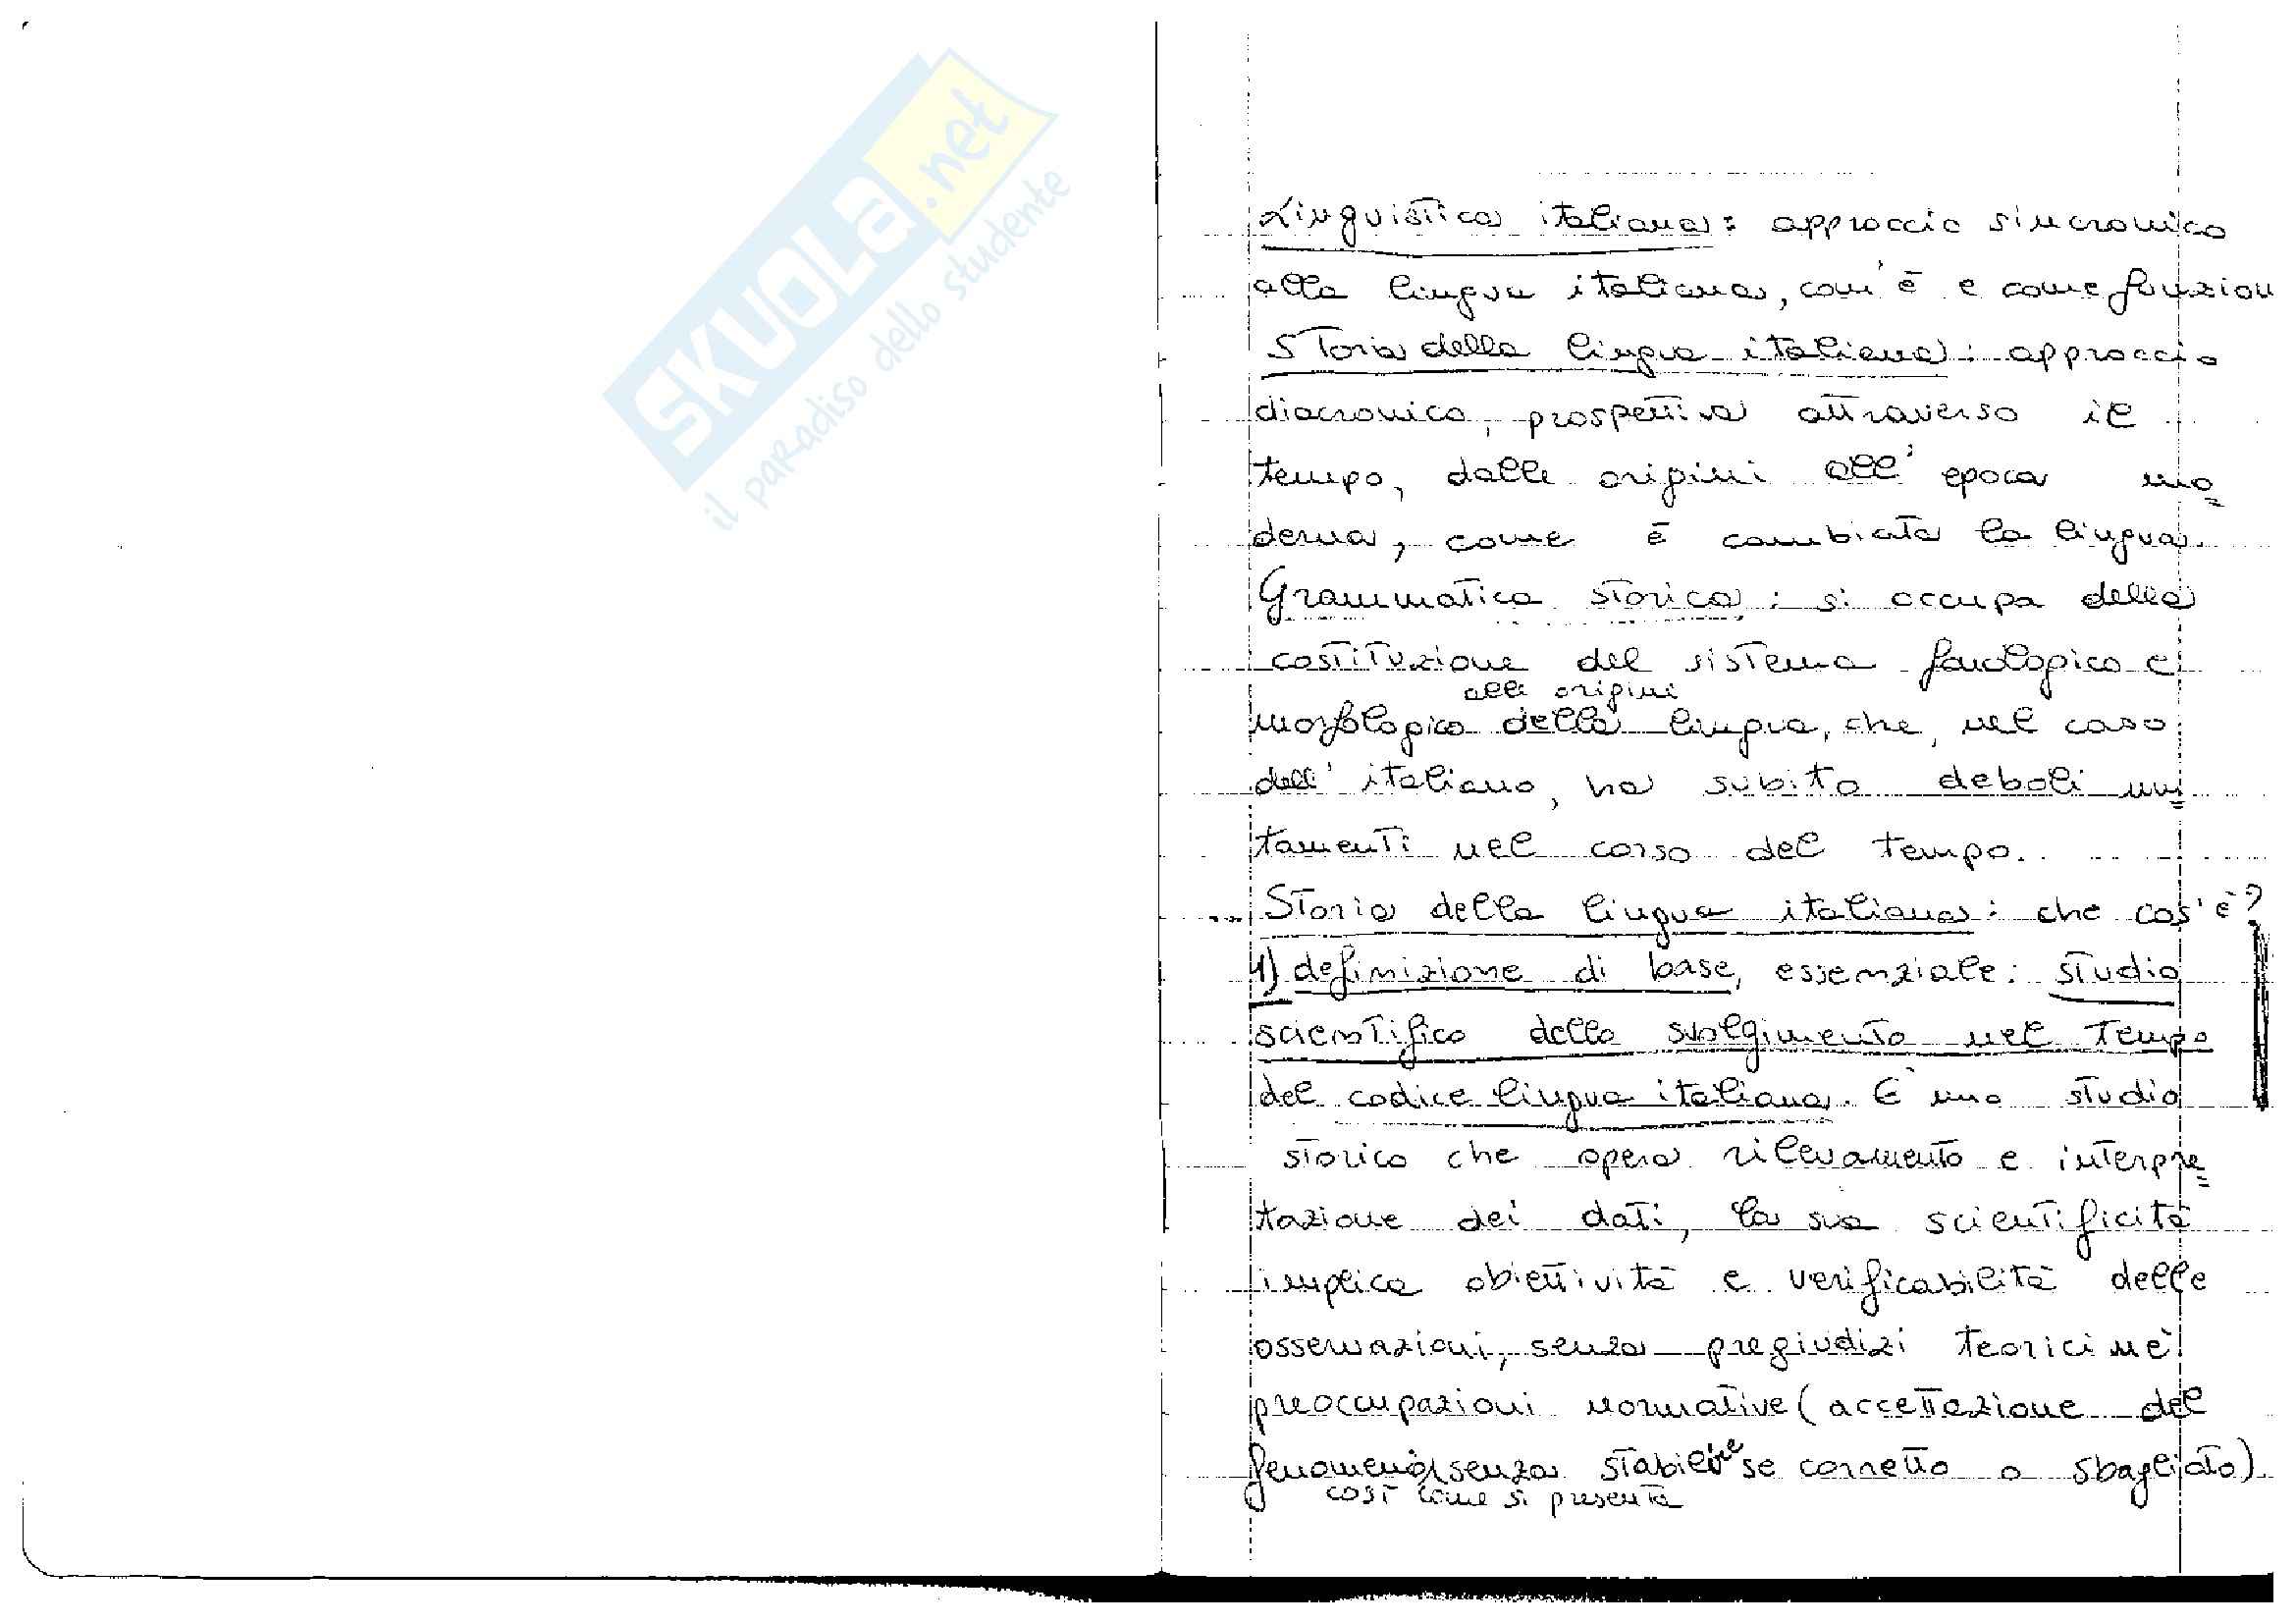 SKUOLA.net
il paradiso dello studente
Linguistica italiana: approccio sincronico
alla lingua italiana, com'è e come funzion
Storia della lingua italiana: approccio
diacronico, prospettiva attraverso il
tempo, dalle origini all'epoca mo=
derna, come è cambiata la lingua.
Grammatica storica: si occupa della
costituzione del sistema fonologico e
alle origini
morfologico della lingua, che, nel caso
dell'italiano, ha subito deboli mu=
tamenti nel corso del tempo.
Storia della lingua italiana: che cos'è?
1) definizione di base, essenziale: studio
scientifico dello svolgimento nel tempo
del codice lingua italiana. È uno studio
storico che opera rilevamento e interpre=
tazione dei dati, la sua scientificità
implica obiettività e verificabilità delle
osservazioni, senza pregiudizi teorici nè
preoccupazioni normative (accettazione del
fenomeno senza stabilire se corretto o sbagliato).
così come si presenta